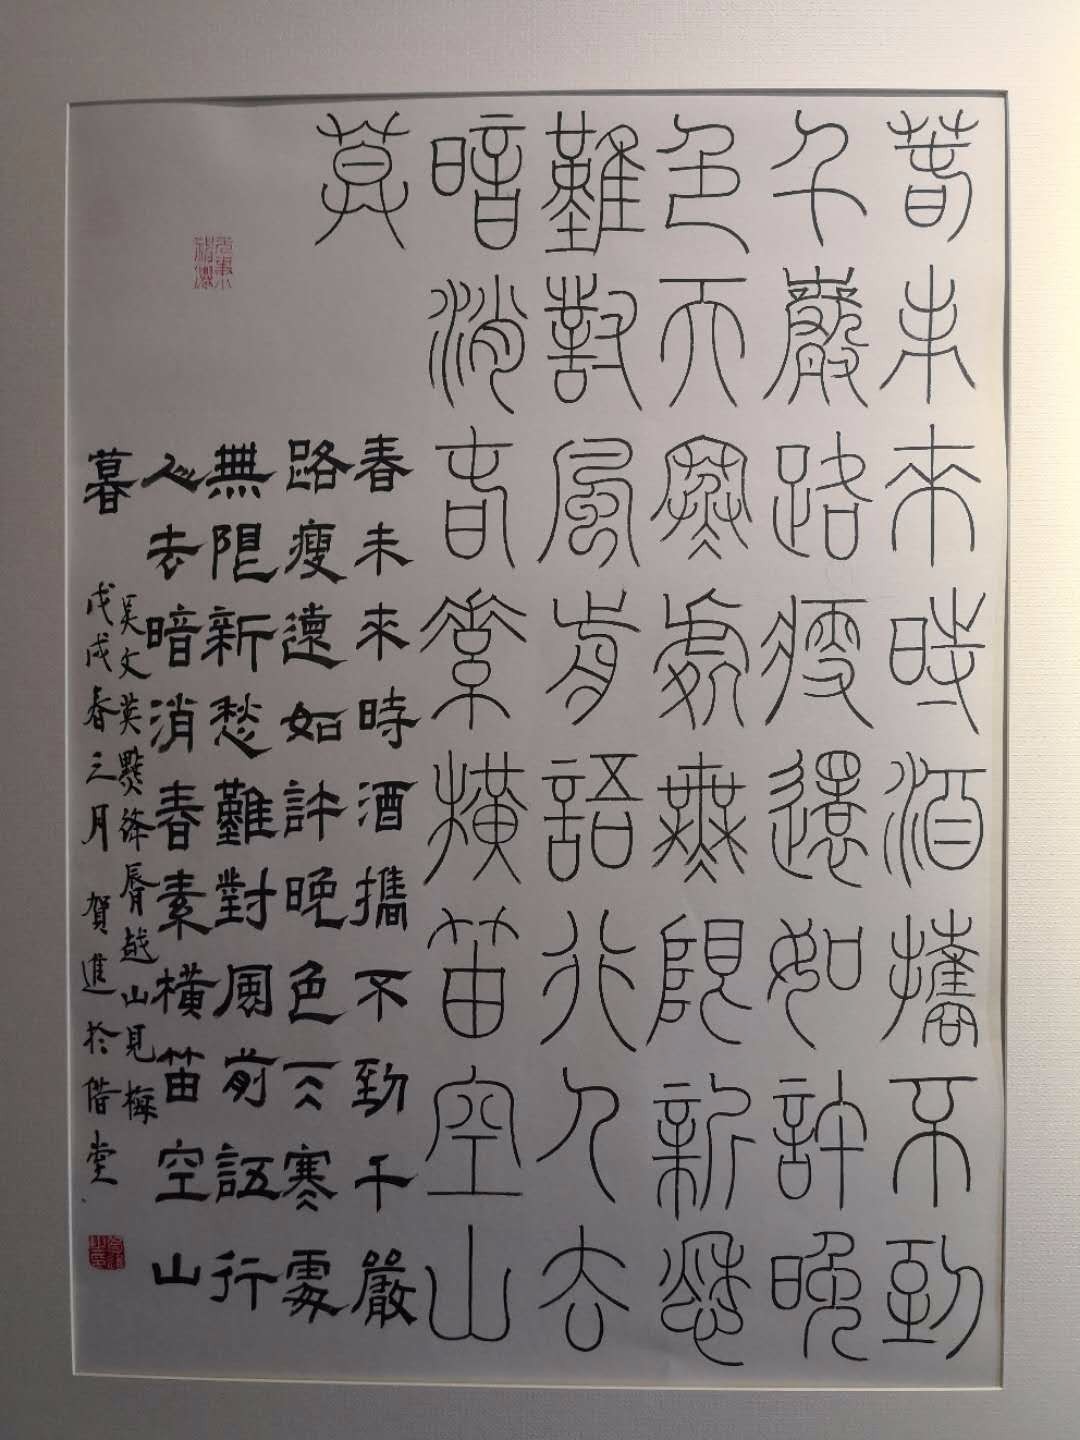 春未來時酒攜不到
千嚴路瘦還如許晚
色天寒處無限新愁
難對風前語行人去
暗消春素橫笛空山
莫
春未來時酒攜不到千嚴
路瘦還如許晚色天寒處
無限新愁難對風前語行
人去暗消春素橫笛空山
暮
吳文英點絳脣越山見梅
戊戌春三月 賀進於堂